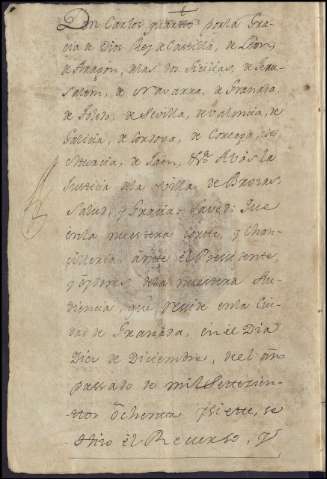 Don Carlos quarto por la Gra-
cia de Dios Rey de Castilla, de Leon,
de Aragon, de las dos Sicilias, de Jeru-
salem, de Navarra, de Granada,
de Toledo, de Sevilla, de Valencia, de
Galicia, de Cordova, de Corcega, de
Murcia, de Jaen, &ra. A vos la
Justicia de la Villa, de Brozas
Salud, y Gracia, Saved: Que
en la nuestra Corte, y Chan-
cilleria ante el Presidente,
y oydores de la nuestra Au-
diencia, que reside en la Ciu-
dad de Granada, en el Dia
Diez de Diciembre, de el año
passado de mil Settezien-
ttos ochenta y siette, se
Hizo el Recurso, y